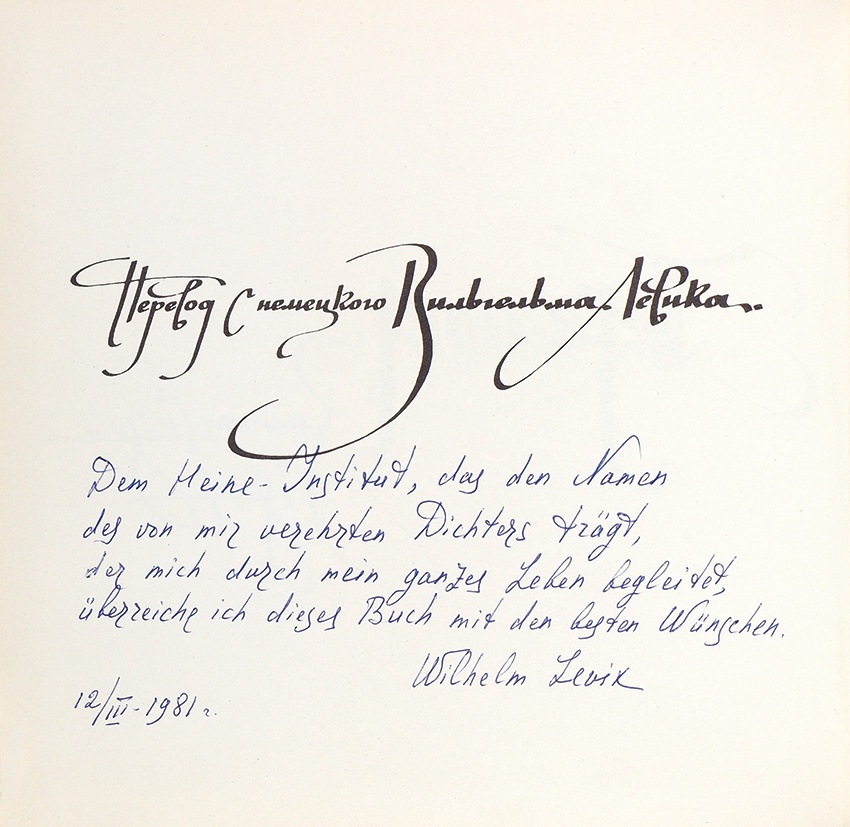 Перевод с немецкого Вильгельма Левика
Dem Heine-Institut, das den Namen
des von mir verehrten Dichters trägt,
der mich durch mein ganzes Leben begleitet,
überreiche ich dieses Buch mit den besten Wünschen.
Wilhelm Levik
12/III-1981 г.